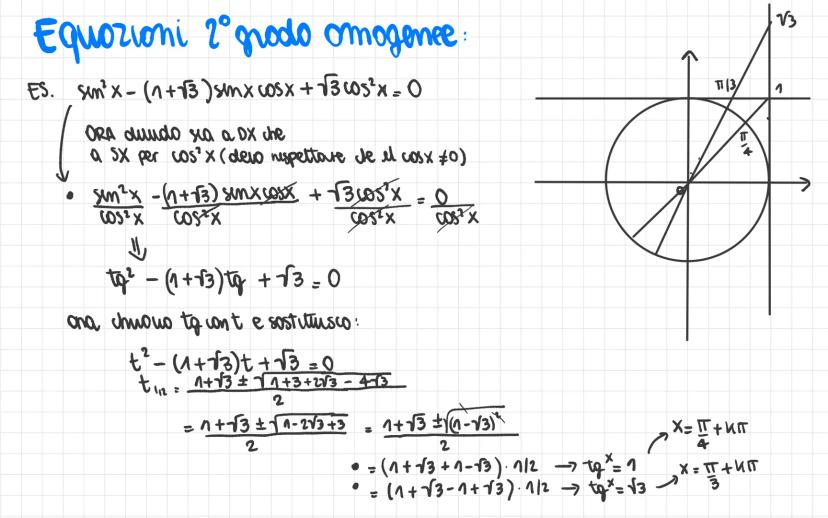 Equazioni 2° grado omogenee:
ES. sin²x - (1+√3) sinx cosx + √3 cos²x = 0
ORA divido sia a DX che
a SX per cos²x (devo rispettare che il cosx ≠ 0)
• sin²x/cos²x - (1+√3) sinx cosx/cos²x + √3 cos²x/cos²x = 0/cos²x
⇓
tg² - (1+√3)tg + √3 = 0
ora chiamo tg con t e sostituisco:
t² - (1+√3)t + √3 = 0
t1/2 = (1+√3 ± √(1+3+2√3 - 4√3))/2
= (1+√3 ± √(1-2√3+3))/2 = (1+√3 ± √(1-√3)²)/2
• = (1+√3+1-√3) · 1/2 → tgx = 1 → x = π/4 + kπ
• = (1+√3-1+√3) · 1/2 → tgx = √3 → x = π/3 + kπ
√3
π/3
1
π/4
o